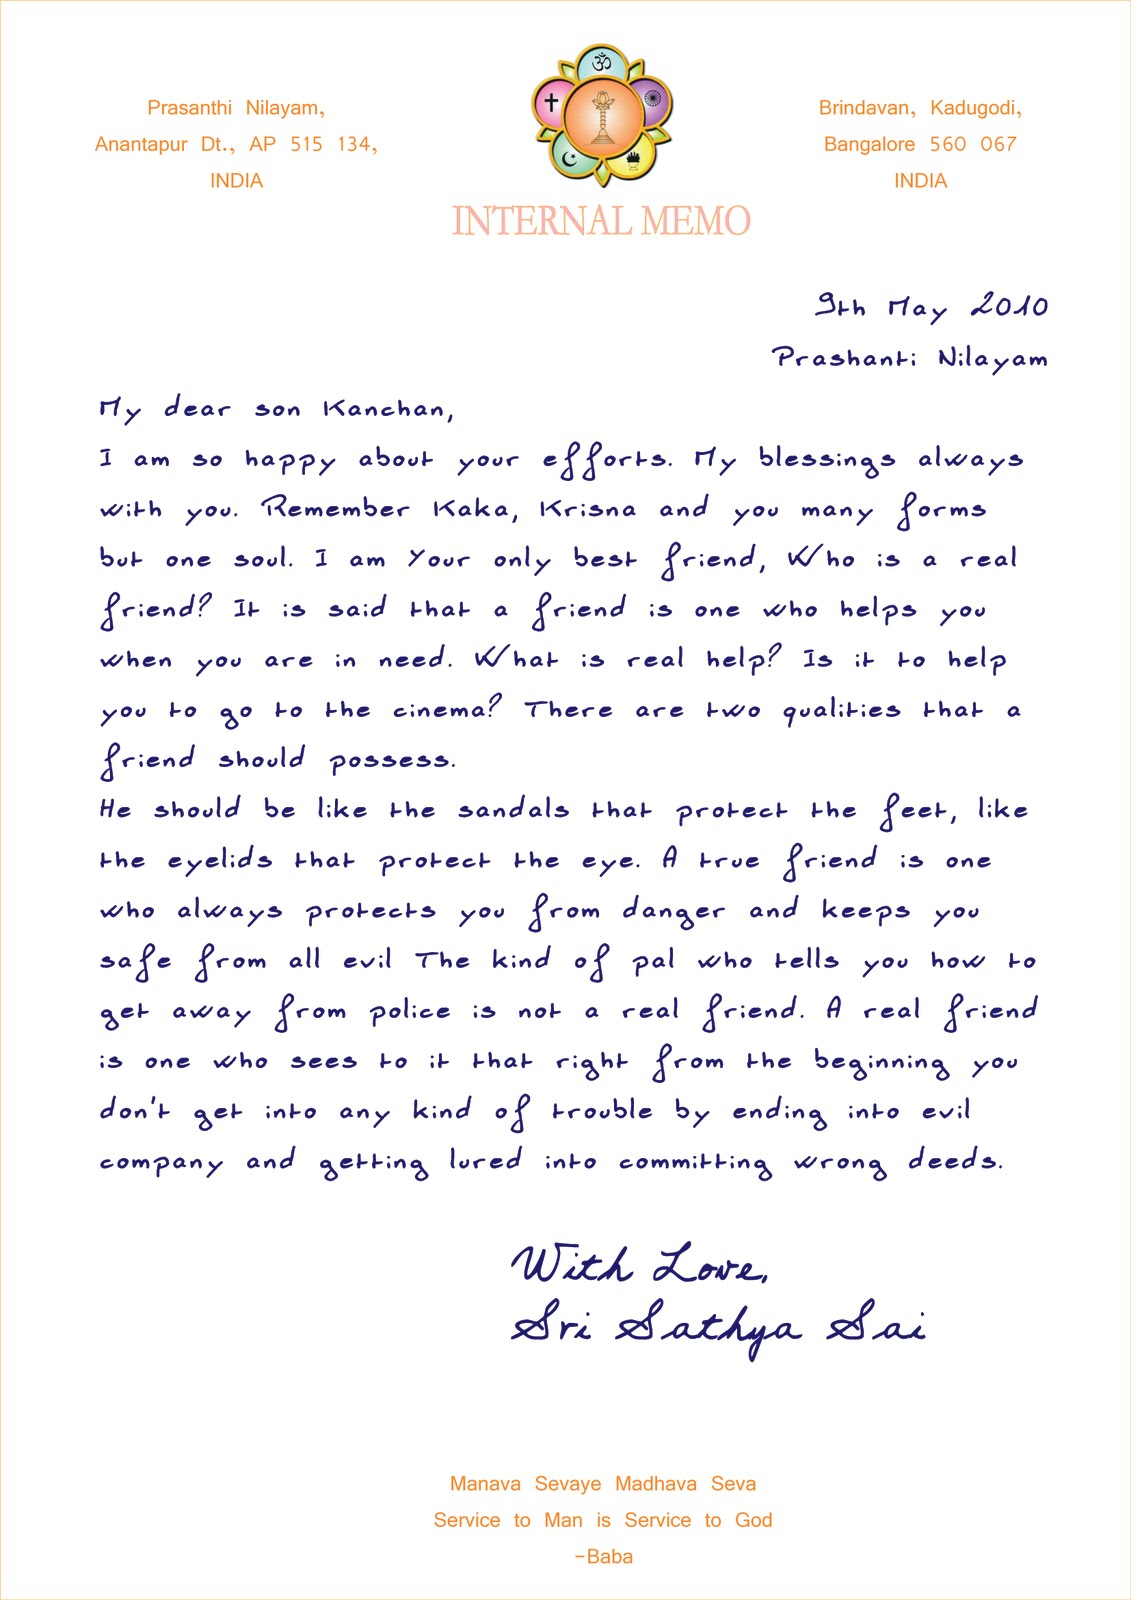 Prasanthi Nilayam,
Anantapur Dt., AP 515 134,
INDIA
Brindavan, Kadugodi,
Bangalore 560 067
INDIA
ॐ
INTERNAL MEMO
9th May 2010
Prashanti Nilayam
My dear son Kanchan,
I am so happy about your efforts. My blessings always
with you. Remember Kaka, Krisna and you many forms
but one soul. I am Your only best friend, Who is a real
friend? It is said that a friend is one who helps you
when you are in need. What is real help? Is it to help
you to go to the cinema? There are two qualities that a
friend should possess.
He should be like the sandals that protect the feet, like
the eyelids that protect the eye. A true friend is one
who always protects you from danger and keeps you
safe from all evil The kind of pal who tells you how to
get away from police is not a real friend. A real friend
is one who sees to it that right from the beginning you
don't get into any kind of trouble by ending into evil
company and getting lured into committing wrong deeds.
With Love,
Sri Sathya Sai
Manava Sevaye Madhava Seva
Service to Man is Service to God
-Baba